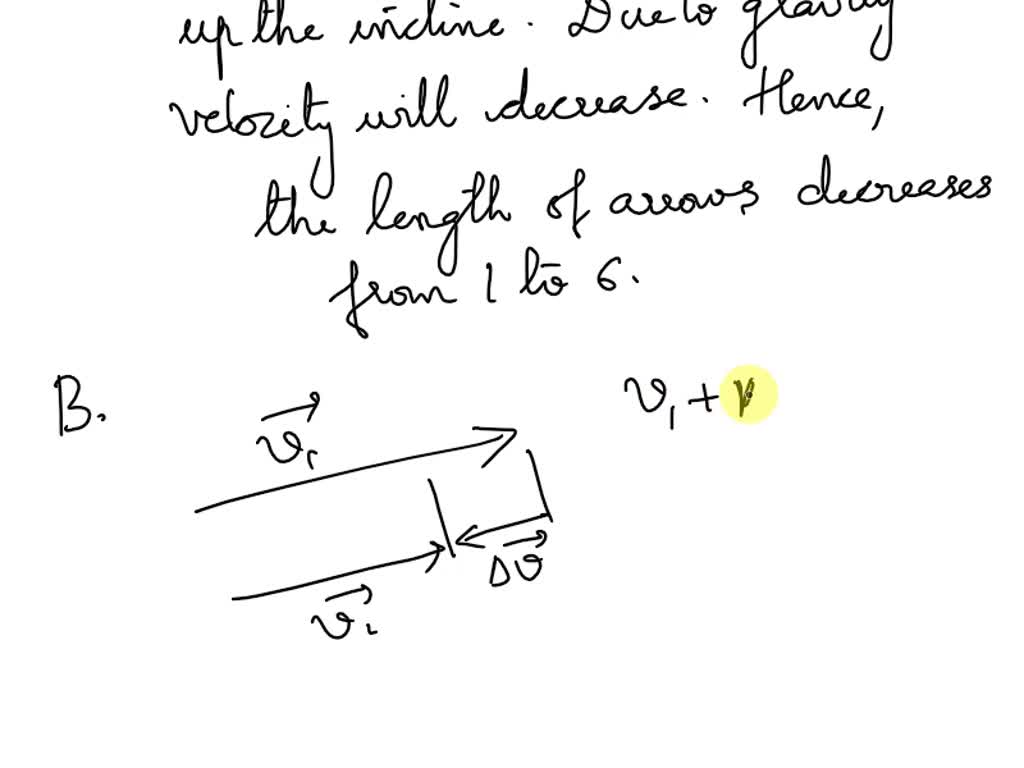 up the incline. Due to gravity
velocity will decrease. Hence,
the length of arrows decreases
from 1 to 6.
B.
v⃗₁
v₁ +
Δv⃗
v⃗₂